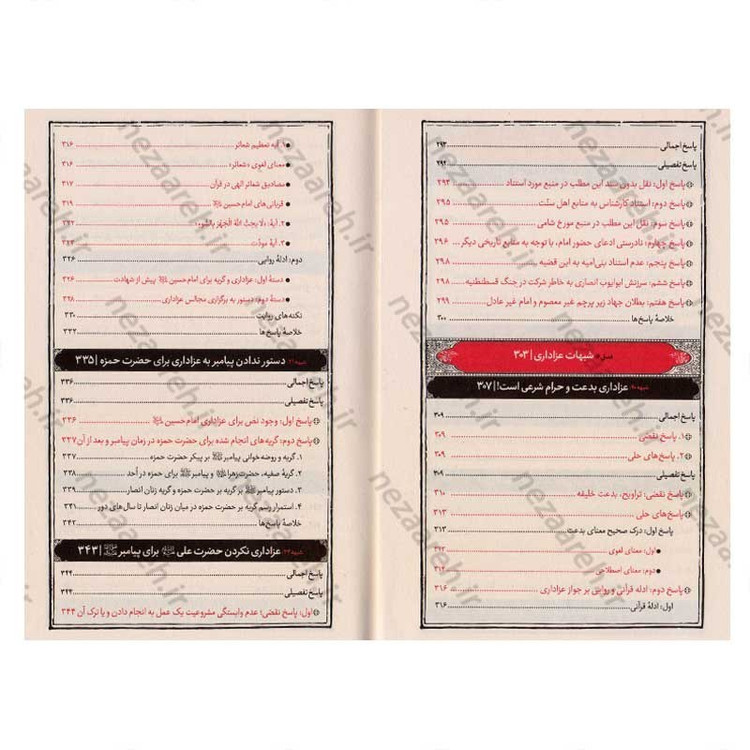 پاسخ اجمالی ۲۹۳
پاسخ تفصیلی ۲۹۴
پاسخ اول: نقل بدون سند این مطلب در منبع مورد استناد ۲۹۴
پاسخ دوم: استناد کارشناس به منابع اهل سنّت ۲۹۵
پاسخ سوم: نقل این مطلب در منبع مورخ شامی ۲۹۵
پاسخ چهارم: نادرستی ادعای حضور امام، با توجه به منابع تاریخی دیگر ۲۹۶
پاسخ پنجم: عدم استناد بنی‌امیه به این قضیه ۲۹۸
پاسخ ششم: سرزنش ابوایوب انصاری به خاطر شرکت در جنگ قسطنطنیه ۲۹۸
پاسخ هفتم: بطلان جهاد زیر پرچم غیر معصوم و امام غیر عادل ۲۹۹
خلاصهٔ پاسخ‌ها ۳۰۰
شبهات عزاداری | ۳۰۳
عزاداری بدعت و حرام شرعی است! | ۳۰۷
پاسخ اجمالی ۳۰۹
۱. پاسخ نقضی ۳۰۹
۲. پاسخ‌های حلی ۳۰۹
پاسخ تفصیلی ۳۰۹
پاسخ نقضی: تراویح، بدعت خلیفه ۳۱۰
پاسخ‌های حلی ۳۱۳
پاسخ اول: درک صحیح معنای بدعت ۳۱۳
اول: معنای لغوی
دوم: معنای اصطلاحی
پاسخ دوم: ادله قرآنی و روایی بر جواز عزاداری ۳۱۶
اول: ادلهٔ قرآنی ۳۱۶
۱. آیه تعظیم شعائر ۳۱۶
معنای لغوی «شعائر» ۳۱۶
مصادیق شعائر الهی در قرآن ۳۱۷
قربانی‌های امام حسین ۳۱۹
۲. آیهٔ «لا یحِبُّ اللهُ الْجَهْرَ بِالسُّوءِ»
۳. آیهٔ مودّت
دوم: ادلهٔ روایی ۳۲۶
دستهٔ اول: عزاداری و گریه برای امام حسین ﷺ پیش از شهادت ۳۲۶
دستهٔ دوم: دستور به برگزاری مجالس عزاداری ۳۲۸
نکته‌های روایت ۳۳۰
خلاصهٔ پاسخ‌ها ۳۳۲
دستور ندادن پیامبر به عزاداری برای حضرت حمزه | ۳۳۵
پاسخ اجمالی ۳۳۶
پاسخ تفصیلی ۳۳۶
پاسخ اول: وجود نص برای عزاداری امام حسین ۳۳۶
پاسخ دوم: گریه‌های انجام شده برای حضرت حمزه در زمان پیامبر و بعد از آن ۳۳۷
۱. گریه و روضه خوانی پیامبر ﷺ بر پیکر حضرت حمزه ۳۳۷
۲. گریهٔ صفیه، حضرت زهرا و پیامبر ﷺ برای حمزه در اُحد ۳۳۸
۳. دستور پیامبر ﷺ بر گریه بر حضرت حمزه و گریه زنان انصار ۳۳۹
۴. استمرار رسم گریه بر حضرت حمزه در میان زنان انصار تا سال‌های دور ۳۴۱
خلاصهٔ پاسخ‌ها ۳۴۲
عزاداری نکردن حضرت علی برای پیامبر ﷺ | ۳۴۳
پاسخ اجمالی ۳۴۴
پاسخ تفصیلی ۳۴۴
اول: پاسخ نقضی؛ عدم وابستگی مشروعیت یک عمل به انجام دادن و یا ترک آن ۳۴۴
nezaareh.ir